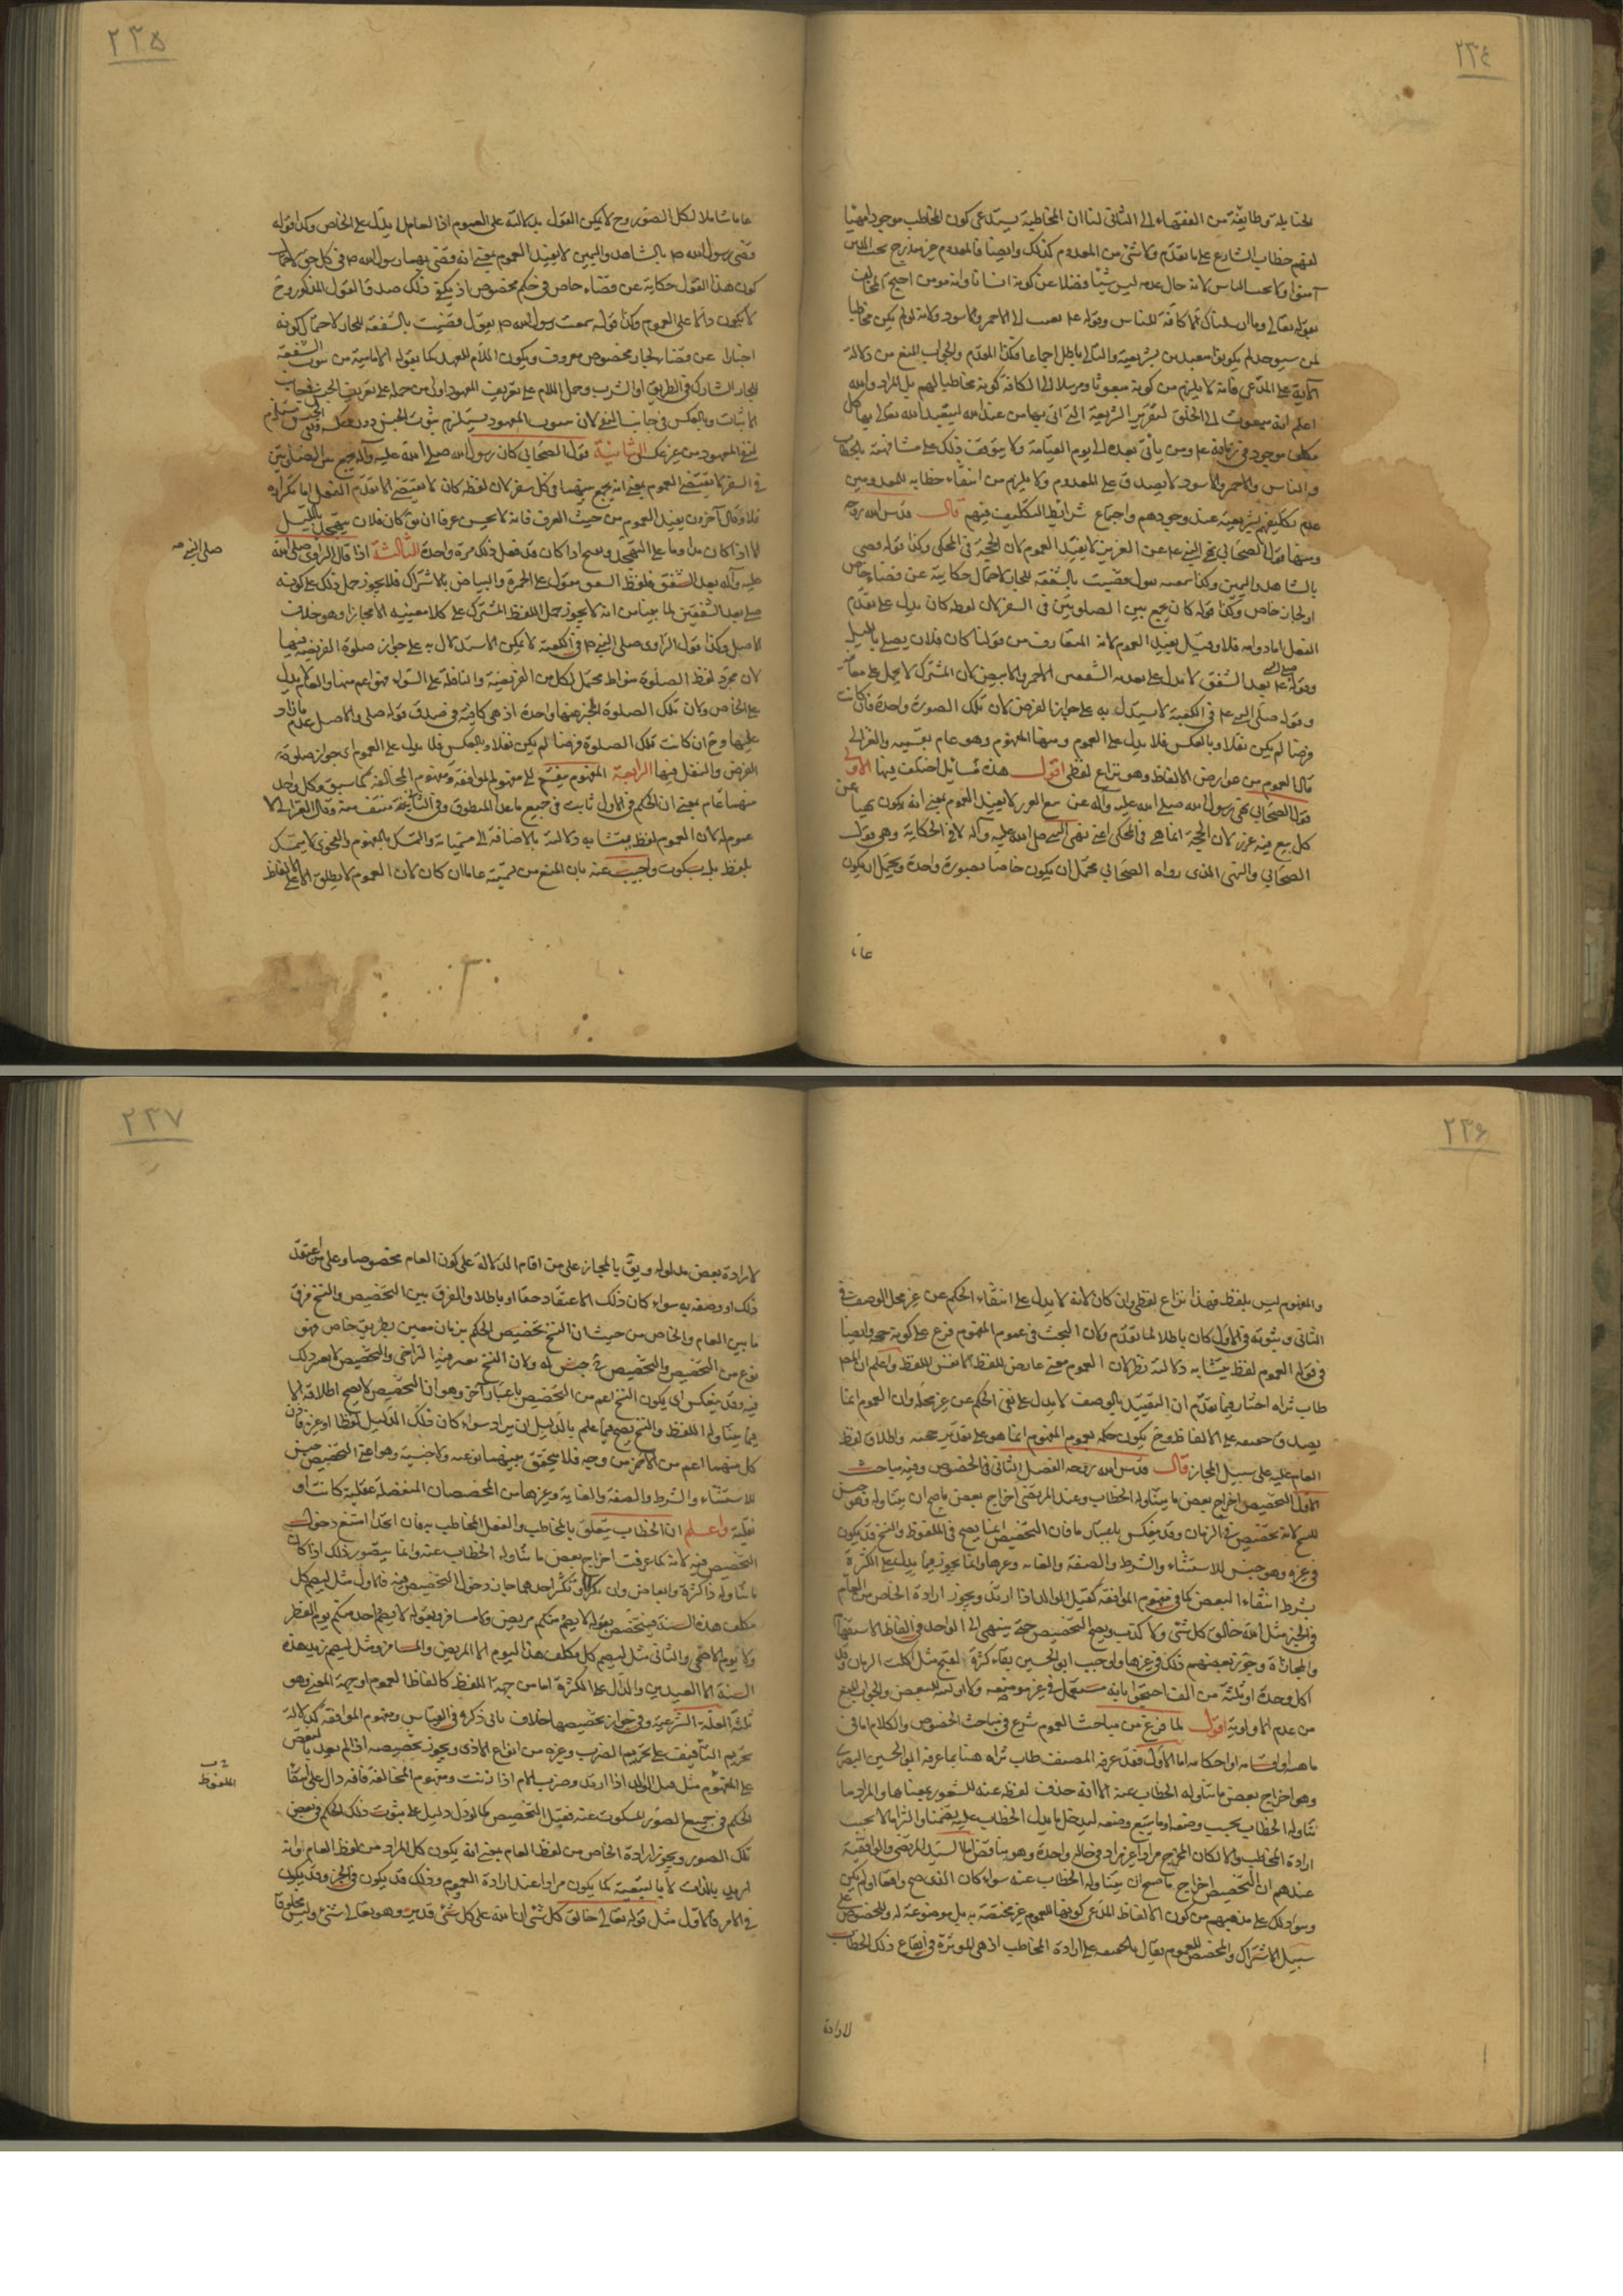 ٢٣٤
الحنابلة وطايفة من الفقهاء الى الثانى لنا ان المخاطبة يستدعى كون المخاطب موجودا متهيئا
لفهم خطاب الشارع على ما تقدم ولا شئ من المعدوم كذلك وايضا فالمعدوم غير مندرج تحت الذين
آمنوا ولا تحت الناس لانه حال عدمه ليس شيئا فضلا عن كونه انسانا وانه مومن احتج المخالف
بقوله تعالى وما ارسلناك الا كافة للناس وقوله عم بعثت الى الاحمر والاسود ولانه لو لم يكن مخاطبا
لمن سيوجد لم يكونوا متعبدين بشريعته والتالى باطل اجماعا فكذا المقدم والجواب المنع من دلالة
الآية على المدعى فانه لا يلزم من كونه مبعوثا ومرسلا الى الكافة كونه مخاطبا لهم بل المراد والله
اعلم انه مبعوث الى الخلق لتقرير الشريعة التى اتى بها من عند الله ليتعبد الله تعالى بها كل
مكلف موجود فى زمانه عم ومن ياتى بعده الى يوم القيامة ولا يتوقف ذلك على مشافهته بالخطاب
والناس والاحمر والاسود لا يصدق على المعدوم ولا يلزم من انتفاء خطابه للمعدومين
عدم تكليفهم بشريعته عند وجودهم واجتماع شرائط التكليف فيهم قال قدس الله روحه
ومنها قول الصحابى نهى النبى عم عن الغرر لا يفيد العموم لان الحجة فى المحكى وكذا قوله قضى
بالشاهد واليمين وكذا سمعته يقول قضيت بالشفعة للجار لاحتمال حكايته عن قضاء خاص
او لجار خاص وكذا قوله كان يجمع بين الصلوتين فى السفر لان لفظه كان يدل على تقدم
الفعل اما دوامه فلا وقيل يفيد العموم لانه المتعارف من قولنا كان فلان يصلى بالليل
وقوله صلى النبى عم بعد الشفق لا يدل على بعدية الشفقين الاحمر والابيض لان المشترك لا يحمل على معانيه
وقوله صلى النبى عم فى الكعبة لا يستدل به على جواز الفرض لان تلك الصورة واحدة فان كانت
فرضا لم يكن نفلا وبالعكس فلا يدل على العموم ومنها المفهوم وهو عام بقسميه والغزالى
قال العموم من عوارض الالفاظ وهو نزاع لفظى اقول هذه مسائل اختلف فيها الاولى
قول الصحابى نهى رسول الله صلى الله عليه وآله عن بيع الغرر لا يفيد العموم بمعنى انه يكون نهيا عن
كل بيع فيه غرر لان الحجة انما هى فى المحكى اعنى نهى النبى صلى الله عليه وآله لا فى الحكاية وهى قول
الصحابى والنهى الذى رواه الصحابى محتمل ان يكون خاصا بصورة واحدة ويحتمل ان يكون
عاما
٢٣٥
عاما شاملا لكل الصور وح لا يمكن القول بدلالته على العموم اذ العام لا يدل على الخاص وكذا قوله
قضى رسول الله ص بالشاهد واليمين لا يفيد العموم بمعنى انه قضى بهما رسول الله ص فى كل حق لاحتمال
كون هذا القول حكاية عن قضاء خاص فى حكم مخصوص اذ يكفى ذلك صدق القول المذكور وح
لا يكون دالا على العموم وكذا قوله سمعت رسول الله ص يقول قضيت بالشفعة للجار لاحتمال كونه
اخبارا عن قضائه لجار مخصوص معروف ويكون اللام للعهد كما يقوله الامامية من ثبوت الشفعة
للجار المشارك فى الطريق او الشرب وحمل اللام على تعريف المعهود اولى من حمله على تعريف الجنس فى جانب
الاثبات وبالعكس فى جانب النفى لان ثبوت المعهود يستلزم ثبوت الجنس دون العكس ونفى الجنس يستلزم
نفى المعهود من غير عكس الثانية قول الصحابى كان رسول الله صلى الله عليه وآله يجمع بين الصلوتين
فى السفر لا يقتضى العموم بمعنى انه يجمع بينهما فى كل سفر لان لفظه كان لا يقتضى الا تقدم الفعل اما تكراره
فلا وقال آخرون يفيد العموم من حيث العرف فانه لا يحسن عرفا ان يق كان فلان يتهجد بالليل
الا اذا كان مداوما على التهجد ويقبح اذا كان قد فعل ذلك مرة واحدة الثالثة اذا قال الراوى صلى الله
عليه وآله بعد الشفق فلفظ الشفق مقول على الحمرة والبياض بالاشتراك فلا يجوز حمل ذلك على كونه
صلى بعد الشفقين لما بينا من انه لا يجوز حمل اللفظ المشترك على كلا معنييه الا مجازا وهو خلاف
الاصل وكذا قول الراوى صلى النبى ص فى الكعبة لا يمكن الاستدلال به على جواز صلوة الفريضة فيها
لان مجرد لفظ الصلوة متواط محتمل لكل من الفريضة والنافلة على السواء فهو اعم منها والعام لا يدل
على الخاص ولان تلك الصلوة المخبر عنها واحدة اذ هى كافية فى صدق قوله صلى والاصل عدم ما زاد
عليها وح ان كانت تلك الصلوة فرضا لم يكن نفلا وبالعكس فلا يدل على العموم اى جواز صلوة
الفرض والنفل فيها الرابعة المفهوم ينقسم الى مفهوم الموافقة ومفهوم المخالفة كما سبق وكل واحد
منهما عام بمعنى ان الحكم فى الاول ثابت فى جميع ما عدا المنطوق وفى الثانى منتف عنه وقال الغزالى لا
عموم له لان العموم لفظ يتشابه دلالته بالاضافة الى مسمياته والتمسك بالمفهوم والفحوى لا يتمسك
بلفظ بل بسكوت واجيب عنه بان المنع من تسميته عاما ان كان لان العموم لا يطلق الا على الالفاظ
صلى النبى صه
٢٣٦
والمفهوم ليس بلفظ فهذا نزاع لفظى وان كان لانه لا يدل على انتفاء الحكم عن غير محل الوصف فى
الثانى وثبوته فى الاول كان باطلا لما تقدم ولان البحث فى عموم المفهوم فرع على كونه حجة وايضا
فى قوله العموم لفظ يتشابه دلالته نظر لان العموم معنى عارض للفظ لا نفس اللفظ واعلم ان المص
طاب ثراه اختار فيما تقدم ان التقييد بالوصف لا يدل على نفى الحكم عن غير محله وان العموم انما
يصدق حقيقة على الالفاظ وح يكون حكمه بعموم المفهوم انما هو على تقدير حجيته واطلاق لفظ
العام عليه على سبيل المجاز قال قدس الله روحه الفصل الثانى فى الخصوص وفيه مباحث
الاول التخصيص اخراج بعض ما يتناوله الخطاب وعند المرتضى اخراج بعض ما صح ان يتناوله وهو جنس
للنسخ لانه تخصيص فى الزمان وقد ينعكس باعتبار ما فان التخصيص انما يصح فى الملفوظ والنسخ قد يكون
فى غيره وهو جنس للاستثناء والشرط والصفة والغاية وغيرها وانما يجوز فيما يدل على الكثرة
بشرط انتفاء البعض كما فى مفهوم الموافقة كقتيل الوالد اذا ارتد ويجوز ارادة الخاص من العام
فى الخبر مثل الله خالق كل شئ ولا كذب ويصح التخصيص حتى ينتهى الى الواحد فى الفاظ الاستفهام
والمجازاة وجوز بعضهم ذلك فى غيرها واوجب ابو الحسين بقاء كثرة لقبح مثل اكلت الرمان وقد
اكل واحدة او ثلثة من الف احتجوا بانه مستعمل فى غير موضوعه ولا اولوية للبعض والجواب المنع
من عدم الاولوية اقول لما فرغ من مباحث العموم شرع فى مباحث الخصوص والكلام اما فى
ماهيته او اقسامه او احكامه اما الاول فقد عرفه المصنف طاب ثراه هنا بما عرفه ابو الحسين البصرى
وهو اخراج بعض ما تناوله الخطاب عنه الا انه حذف لفظة عنه للشعور بمعناها والمراد ما
تناوله الخطاب بحسب وضعه او ما يتبع وضعه ليدخل ما يدل الخطاب عليه تضمنا والتزاما لا بحسب
ارادة المخاطب والا لكان المخرج مرادا غير مراد فى حالة واحدة وهو تناقض اما السيد المرتضى والواقفية
عندهم ان التخصيص اخراج ما صح ان يتناوله الخطاب عنه سواء كان الذى صح واقعا او لم يكن
وسواء ذلك على مذهبهم من كون الالفاظ المدعى كونها للعموم غير مختصة به بل موضوعة له وللخصوص على
سبيل الاشتراك والمخصص للعموم يقال بالحقيقة على ارادة المخاطب اذ هى المؤثرة فى ايقاع ذلك الخطاب
لارادة
٢٣٧
لارادة بعض مدلوله ويق بالمجاز على من اقام الدلالة على كون العام مخصوصا وعلى من اعتقد
ذلك او وصفه به سواء كان ذلك الاعتقاد حقا او باطلا والفرق بين التخصيص والنسخ فرق
ما بين العام والخاص من حيث ان النسخ تخصيص الحكم بزمان معين بطريق خاص فهو
نوع من التخصيص والتخصيص جنس له ولان النسخ يعتبر فيه التراخى والتخصيص لا يعتبر ذلك
فيه وقد ينعكس اى يكون النسخ اعم من التخصيص باعتبار آخر وهو ان التخصيص لا يصح اطلاقه الا
فيما يتناوله اللفظ والنسخ يصح فيما علم بالدليل ان يراد سواء كان ذلك الدليل لفظا او غيره فاذن
كل منهما اعم من الآخر من وجه فلا يتحقق بينهما نوعية ولا جنسية وهو اعنى التخصيص جنس
للاستثناء والشرط والصفة والغاية وغيرها من المخصصات المنفصلة عقلية كانت او
نقلية واعلم ان الخطاب يتعلق بالمخاطب والفعل المخاطب به فان اتحدا امتنع دخول
التخصيص فيه لانه كما عرفت اخراج بعض ما تناوله الخطاب عنه وانما يتصور ذلك اذا كان
ما تناوله ذا كثرة وابعاض وان تكثرا او تكثر احدهما جاز دخول التخصيص فيه فالاول مثل ليصم كل
مكلف هذه السنة فيتخصص بقوله لا يصم منكم مريض ولا مسافر وبقوله لا يصم احد منكم يوم الفطر
ولا يوم الاضحى والثانى مثل ليصم كل مكلف هذا اليوم الا المريض والمسافر ومثل ليصم زيد هذه
السنة الا العيدين والدال على الكثرة اما من جهة اللفظ كالفاظ العموم او جهة المعنى وهو
ثلثة العلة الشرعية وفى جواز تخصيصها خلاف ياتى ذكره فى القياس ومفهوم الموافقة كدلالة
تحريم التأفيف على تحريم الضرب وغيره من انواع الاذى ويجوز تخصيصه اذا لم يعد بالنقض
على المفهوم مثل قتل الوالد اذا ارتد وضرب الام اذا زنت ومفهوم المخالفة فانه دال على انتفاء
الحكم فى جميع الصور المسكوت عنه فيقبل التخصيص كما لو دل دليل على ثبوت ذلك الحكم فى بعض
تلك الصور ويجوز ارادة الخاص من لفظ العام بمعنى انه يكون كل المراد من لفظ العام او انه
اريد بالذات لا بالتبعية كما يكون مرادا عند ارادة العموم وذلك قد يكون فى الخبر وقد يكون
فى الامر فالاول مثل قوله تعالى خالق كل شئ ان الله على كل شئ قدير وهو تعالى شئ وليس مخلوقا
الملفوظ